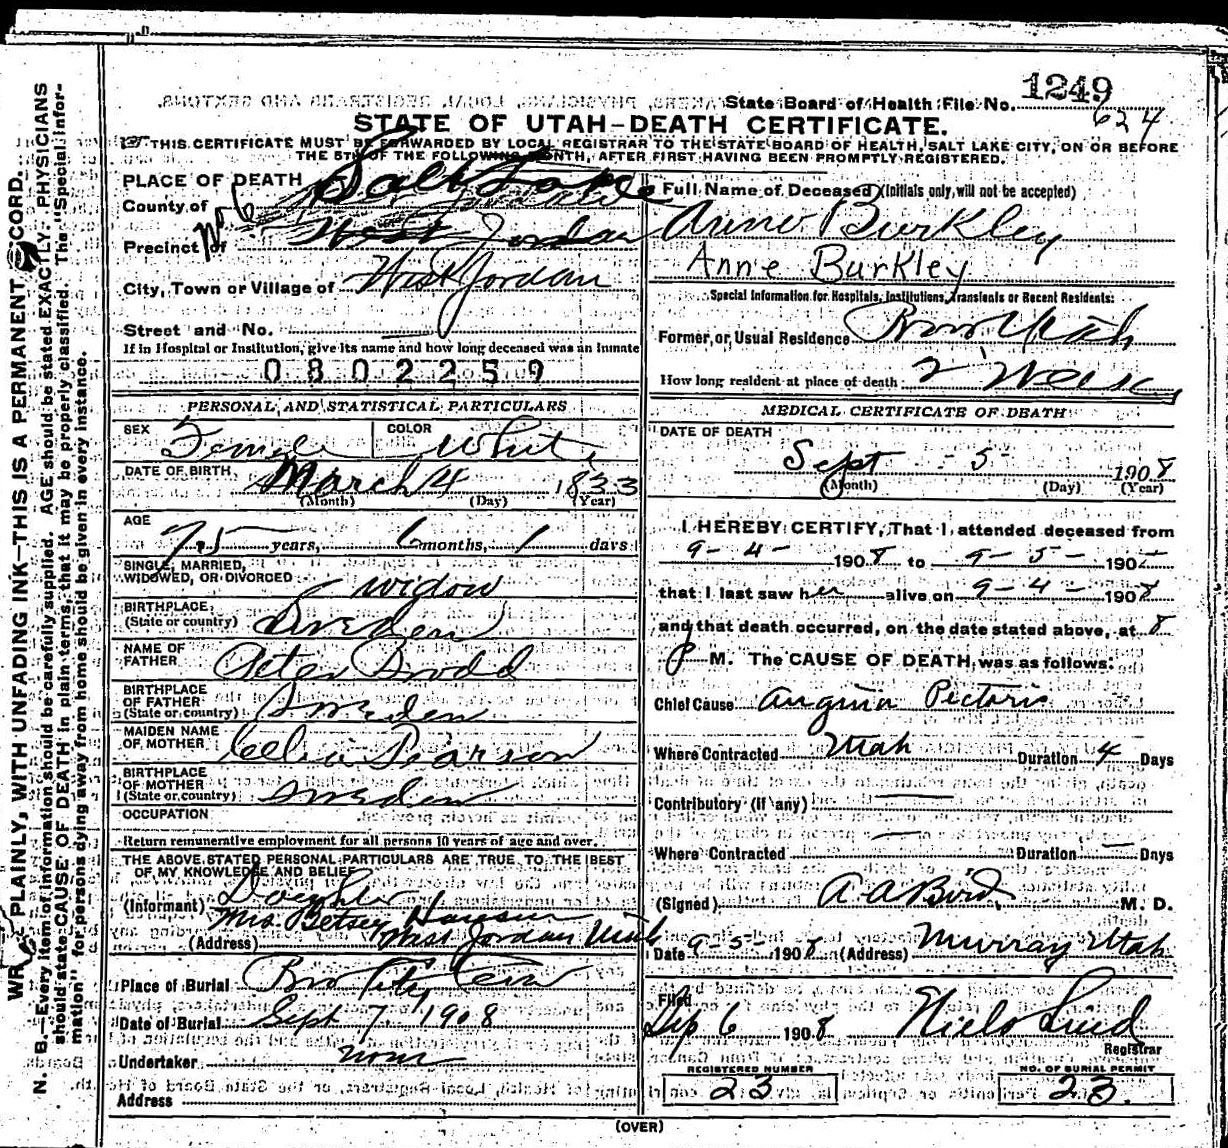 1249
State Board of Health File No.
624
STATE OF UTAH—DEATH CERTIFICATE.
THIS CERTIFICATE MUST BE FORWARDED BY LOCAL REGISTRAR TO THE STATE BOARD OF HEALTH, SALT LAKE CITY, ON OR BEFORE
THE 5TH OF THE FOLLOWING MONTH, AFTER FIRST HAVING BEEN PROMPTLY REGISTERED.
WRITE PLAINLY, WITH UNFADING INK—THIS IS A PERMANENT RECORD.
N. B.—Every item of information should be carefully supplied. AGE should be stated EXACTLY. PHYSICIANS
should state CAUSE OF DEATH in plain terms, that it may be properly classified. The "Special Infor-
mation" for persons dying away from home should be given in every instance.
PLACE OF DEATH
County of Salt Lake
Precinct of No 6 West Jordan
City, Town or Village of West Jordan
Street and No.
If in Hospital or Institution, give its name and how long deceased was an inmate
0802259
PERSONAL AND STATISTICAL PARTICULARS
SEX Female COLOR White
DATE OF BIRTH March 4 1833
(Month) (Day) (Year)
AGE
75 years, 6 months, 1 days
SINGLE, MARRIED,
WIDOWED, OR DIVORCED widow
BIRTHPLACE
(State or country) Sweden
NAME OF
FATHER Peter
BIRTHPLACE
OF FATHER
(State or country) Sweden
MAIDEN NAME
OF MOTHER Celia Pearson
BIRTHPLACE
OF MOTHER
(State or country) Sweden
OCCUPATION
Return remunerative employment for all persons 10 years of age and over.
THE ABOVE STATED PERSONAL PARTICULARS ARE TRUE TO THE BEST
OF MY KNOWLEDGE AND BELIEF
(Informant) Daughter
Mrs. Betsey Hansen
(Address) West Jordan Utah
Place of Burial
Date of Burial Sept 7 1908
Undertaker none
Address
Full Name of Deceased (Initials only, will not be accepted)
Anne Burkley
Anne Burkley
Special Information for Hospitals, Institutions, Transients or Recent Residents:
Former, or Usual Residence Utah
How long resident at place of death 2 Weeks
MEDICAL CERTIFICATE OF DEATH
DATE OF DEATH
Sept - 5 - 1908
(Month) (Day) (Year)
I HEREBY CERTIFY, That I attended deceased from
9-4- 1908 to 9-5- 190
that I last saw her alive on 9-4- 1908
and that death occurred, on the date stated above, at 8
P M. The CAUSE OF DEATH was as follows:
Chief Cause Angina Pectoris
Where Contracted Utah Duration 4 Days
Contributory (If any)
Where Contracted Duration — Days
(Signed) A A Bird, M. D.
Date 9-5- 1908 (Address) Murray Utah
Filed
Sep 6 1908 Niels Lind
Registrar
REGISTERED NUMBER
23
NO. OF BURIAL PERMIT
23.
(OVER)